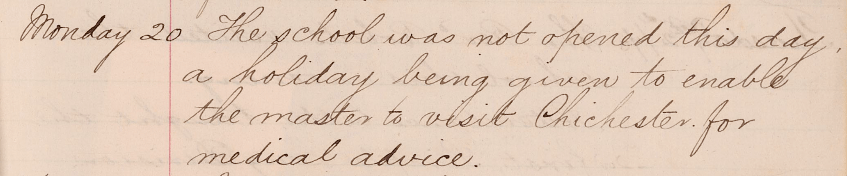 Monday 20 The school was not opened this day,
a holiday being given to enable
the master to visit Chichester for
medical advice.